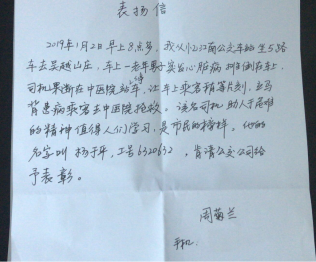 表扬信
2019年1月2日早上8点多,我从小江南公交车站坐5路
车去吴越山庄,车上一老年男子突发心脏病 倒在车上,
司机果断在中医院站停车,让车上乘客稍等片刻,立马
背患病乘客去中医院抢救。该名司机 助人于危难
的精神值得人们学习,是市民的榜样,他的
名字叫 杨于平,工号6320632,肯请公交公司给
予表彰。
周菊兰
手机: